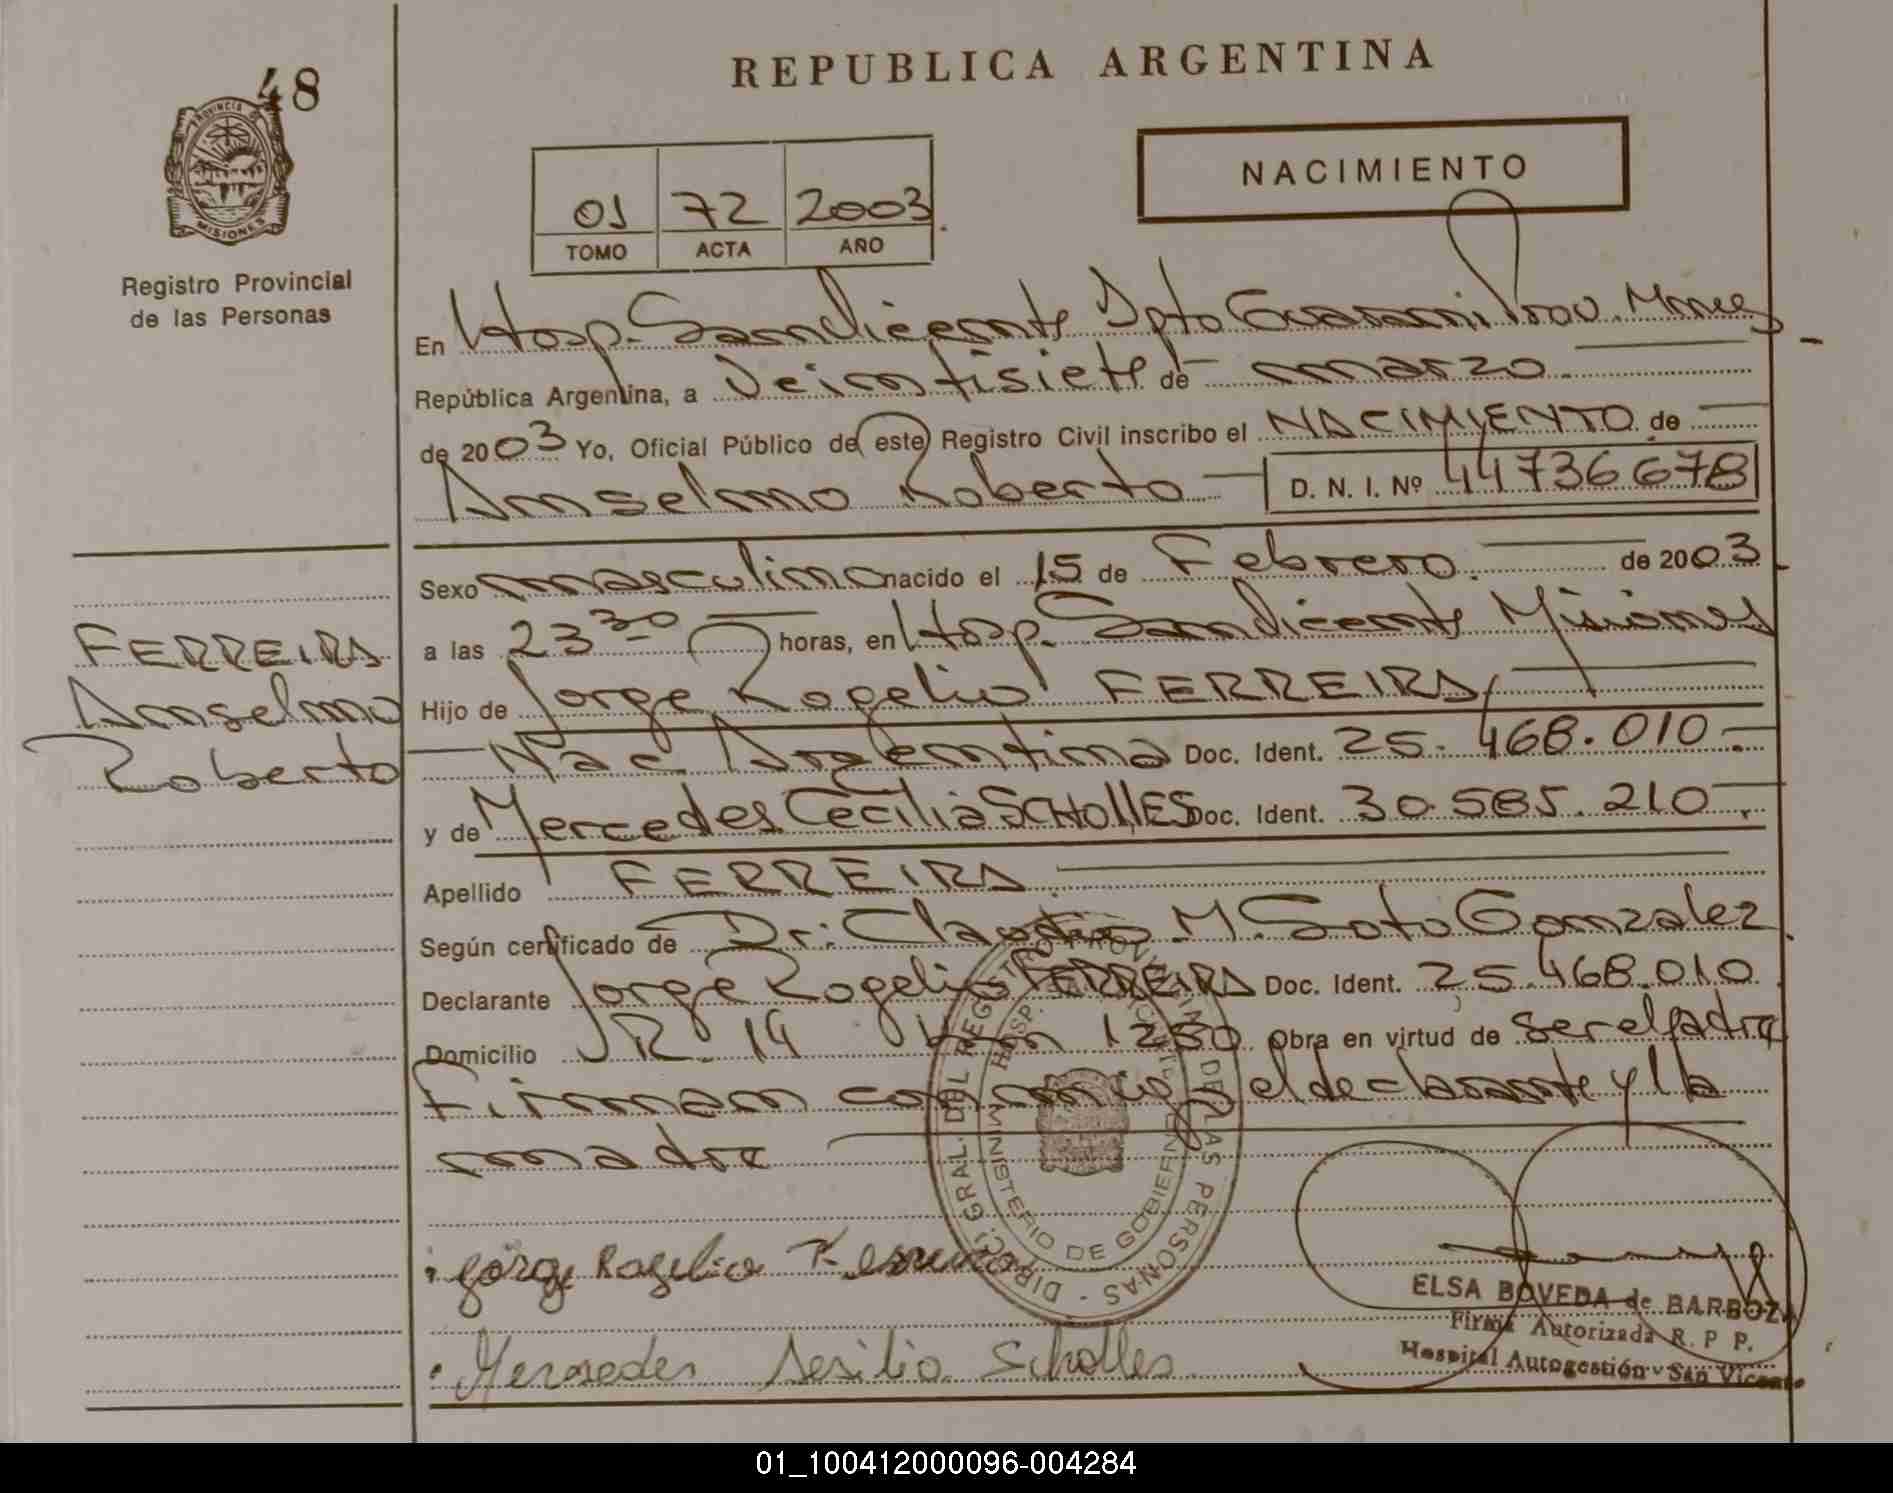 48
REPUBLICA ARGENTINA
PROVINCIA DE
MISIONES
NACIMIENTO
01 72 2003
TOMO ACTA AÑO
Registro Provincial
de las Personas
En Hosp. San Vicente Dpto Guaraní Prov. Mnes
República Argentina, a Veintisiete de marzo.
de 2003 Yo, Oficial Público de este Registro Civil inscribo el NACIMIENTO de
Anselmo Roberto D. N. I. Nº 44736678
Sexo masculino nacido el 15 de Febrero. de 2003
a las 23 30 horas, en Hosp. San Vicente Misiones
Hijo de Jorge Rogelio FERREIRA
Nac. Argentina Doc. Ident. 25.468.010.-
y de Mercedes Cecilia SCHOLLES Doc. Ident. 30.585.210.-
Apellido FERREIRA
Según certificado de Dr. Claudio M. Soto Gonzalez
Declarante Jorge Rogelio FERREIRA Doc. Ident. 25.468.010
Domicilio R. 14 km 1250 Obra en virtud de ser el padre
Firman conmigo el declarante y la
madre
FERREIRA
Anselmo
Roberto
DIRECC. GRAL. DEL REGISTRO PROVINCIAL DE LAS PERSONAS
HOSP.
MINISTERIO DE GOBIERNO
Jorge Rogelio Ferreira
Mersedes Sesilia Scholles
ELSA BOVEDA de BARBOZA
Firma Autorizada R. P P.
Hospital Autogestión - San Vicente
01_100412000096-004284